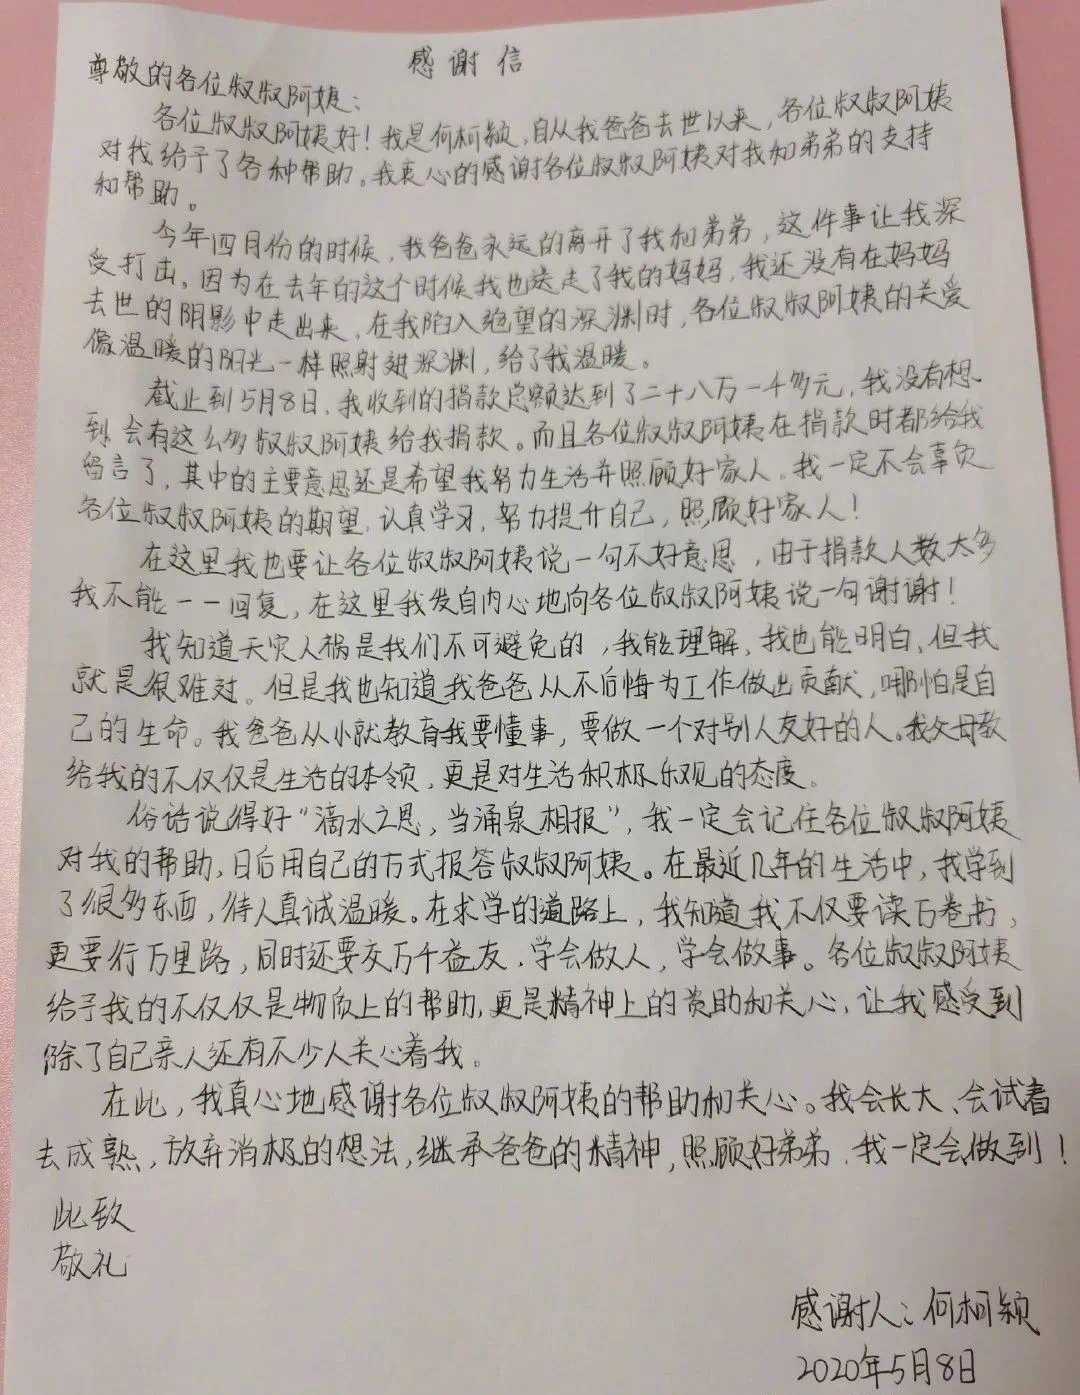 感谢信
尊敬的各位叔叔阿姨：
各位叔叔阿姨好！我是何柯颖，自从我爸爸去世以来，各位叔叔阿姨
对我给予了各种帮助。我衷心的感谢各位叔叔阿姨对我和弟弟的支持
和帮助。
今年四月份的时候，我爸爸永远的离开了我和弟弟，这件事让我深
受打击。因为在去年的这个时候我也送走了我的妈妈，我还没有在妈妈
去世的阴影中走出来，在我陷入绝望的深渊时，各位叔叔阿姨的关爱
像温暖的阳光一样照射进深渊，给了我温暖。
截止到5月8日，我收到的捐款总额达到了二十八万一千多元，我没有想
到会有这么多叔叔阿姨给我捐款。而且各位叔叔阿姨在捐款时都给我
留言了，其中的主要意思还是希望我努力生活并照顾好家人。我一定不会辜负
各位叔叔阿姨的期望，认真学习，努力提升自己，照顾好家人！
在这里我也要让各位叔叔阿姨说一句不好意思，由于捐款人数太多
我不能一一回复，在这里我发自内心地向各位叔叔阿姨说一句谢谢！
我知道天灾人祸是我们不可避免的，我能理解，我也能明白，但我
就是很难过。但是我也知道我爸爸从不后悔为工作做出贡献，哪怕是自
己的生命。我爸爸从小就教育我要懂事，要做一个对别人友好的人。我父母教
给我的不仅仅是生活的本领，更是对生活积极乐观的态度。
俗话说得好“滴水之恩，当涌泉相报”，我一定会记住各位叔叔阿姨
对我的帮助，日后用自己的方式报答叔叔阿姨。在最近几年的生活中，我学到
了很多东西，待人真诚温暖。在求学的道路上，我知道我不仅要读万卷书，
更要行万里路，同时还要交万千益友，学会做人，学会做事。各位叔叔阿姨
给予我的不仅仅是物质上的帮助，更是精神上的资助和关心，让我感受到
除了自己亲人还有不少人关心着我。
在此，我真心地感谢各位叔叔阿姨的帮助和关心。我会长大、会试着
去成熟，放弃消极的想法，继承爸爸的精神，照顾好弟弟，我一定会做到！
此致
敬礼
感谢人：何柯颖
2020年5月8日